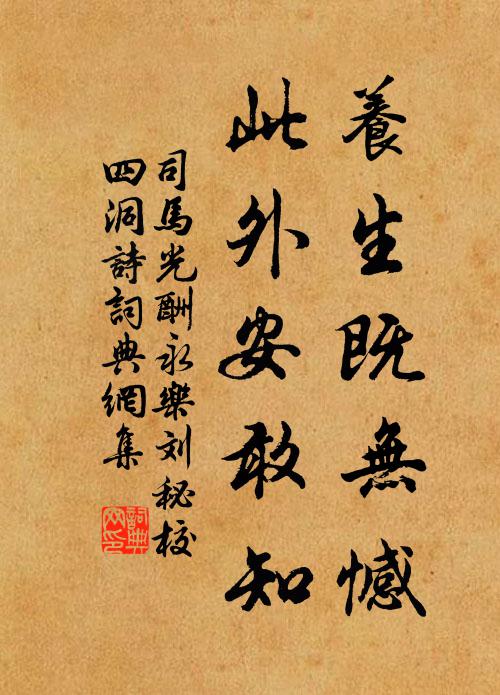 養生既無憾
此外安敢知
司馬光酬永樂刘秘校
四洞詩詞典網集
詞典網印